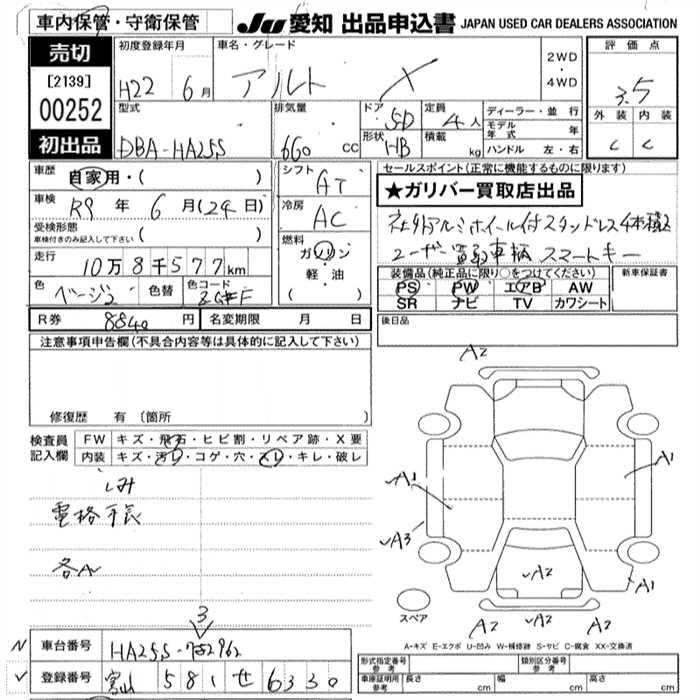 車内保管・守衛保管
JU 愛知 出品申込書 JAPAN USED CAR DEALERS ASSOCIATION
売切
[2139]
00252
初出品
初度登録年月
H22 6月
車名・グレード
アルト X
2WD
・
4WD
評価点
3.5
外装 内装
C C
型式
DBA-HA25S
排気量
660 cc
ドア
5D
形状
HB
定員
4人
積載
kg
ディーラー・並行
モデル年式 年
ハンドル 左・右
車歴
自家用・( )
車検
R9年 6月(24日)
受検形態
車検付きのみ記入して下さい ( )
走行
10万8千577km
色
ベージュ
色替
色コード
シフト
AT
冷房
AC
燃料
ガソリン
軽・油
( )
セールスポイント(正常に機能するものに限ります)
★ガリバー買取店出品
社外アルミホイール付スタッドレス4本積込
ユーザー買取車輌 スマートキー
装備品(純正品に限り○をつけてください)
PS PW エアB AW
SR ナビ TV カワシート
新車保証書
後日品
R券 8840円
名変期限 月 日
注意事項申告欄(不具合内容等は具体的に記入して下さい)
修復歴 有 〔箇所
検査員記入欄
FW キズ・飛石・ヒビ割・リペア跡・X要
内装 キズ・汚レ・コゲ・穴・スレ・キレ・破レ
シミ
電格
各A
3
A2
A1
A1
A3
A2
A1
A2
A2
A2
スペア
A-キズ E-エクボ U-凹み W-補修跡 S-サビ C-腐食 XX-交換済
N 車台番号 HA25S-752962
登録番号 富山 581 せ 6330
形式指定番号 参考
類別区分番号 参考
車庫証明用 参考
長さ cm
幅 cm
高さ cm